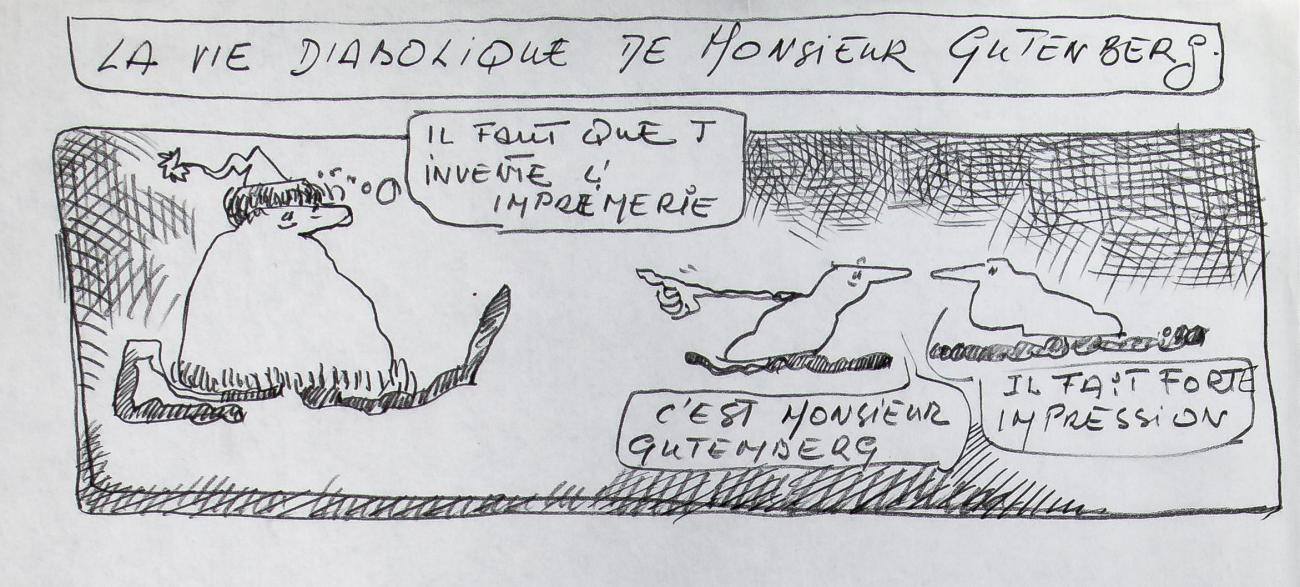 LA VIE DIABOLIQUE DE MONSIEUR GUTENBERG.
IL FAUT QUE J
INVENTE L'
IMPREMERIE
C'EST MONSIEUR
GUTEMBERG
IL FAIT FORTE
IMPRESSION